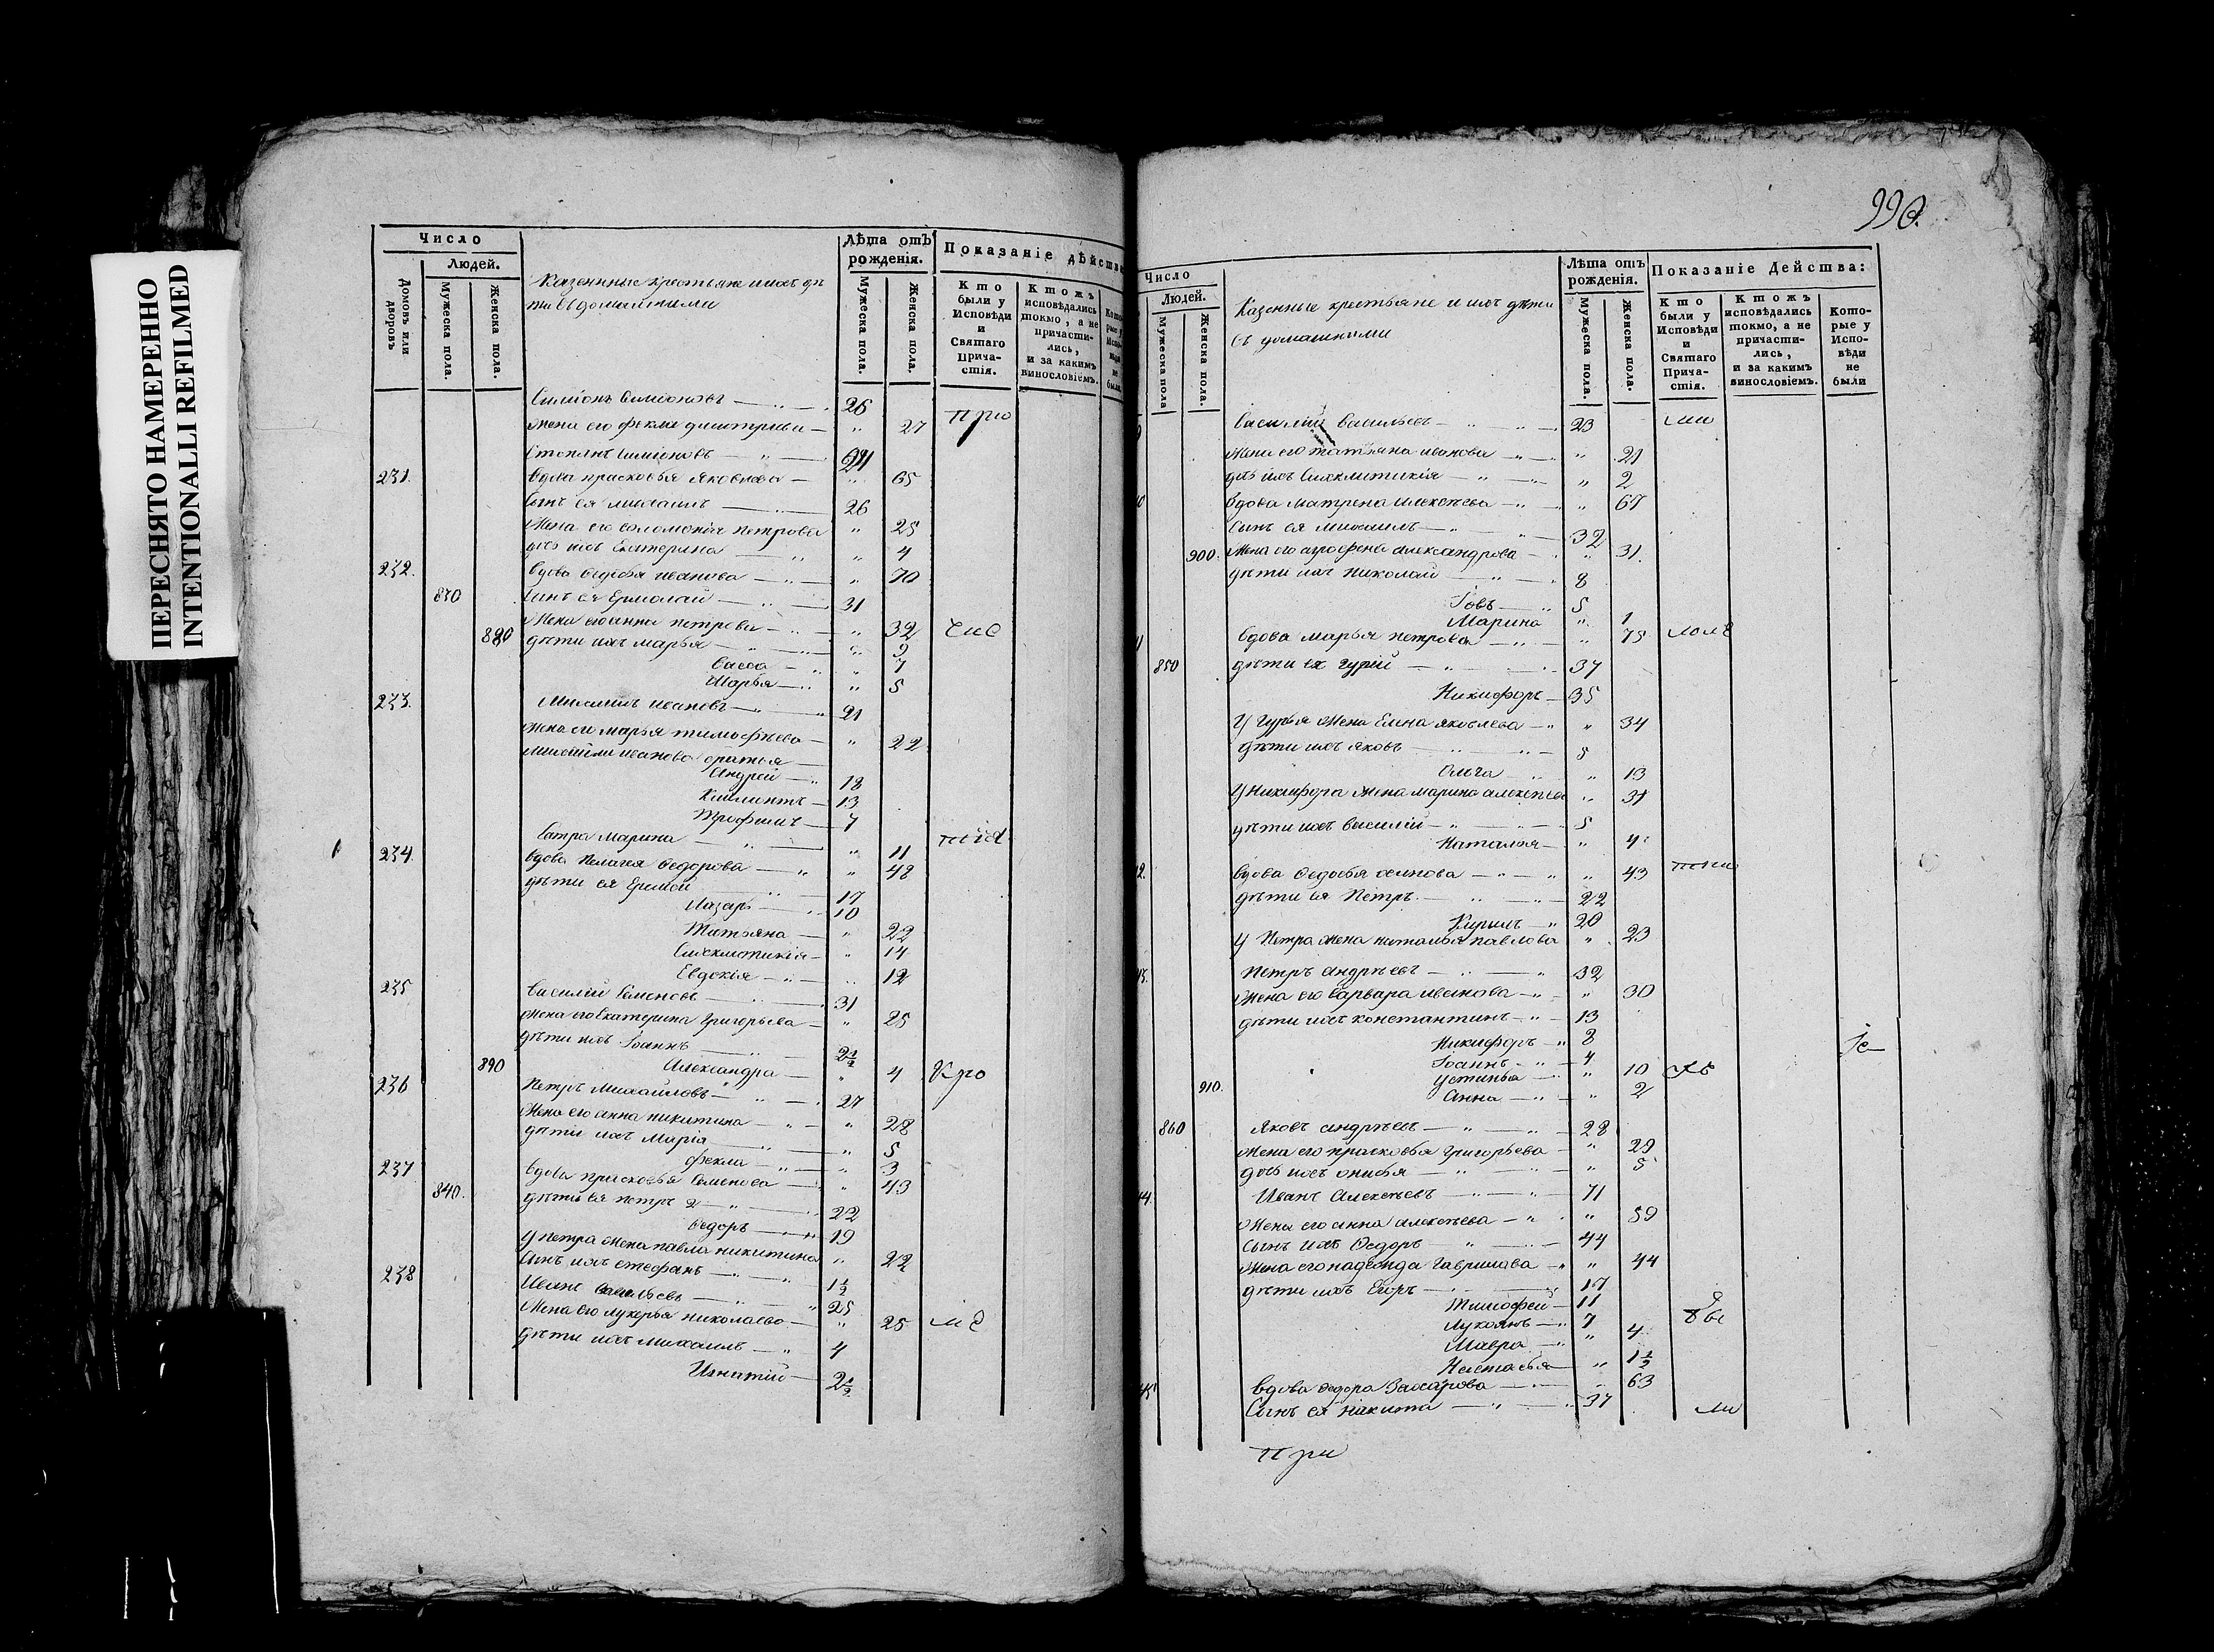 ПЕРЕСНЯТО НАМЕРЕННО
INTENTIONALLI REFILMED
Число
Людей.
Домовъ или дворовъ
Мужеска пола.
Женска пола.
Казенные крестьяне и ихъ дѣ
ти съ домашними
Лѣта отъ рожденія.
Мужеска пола.
Женска пола.
Показаніе дѣйства
Кто были у Исповѣди и Святаго Прича-стія.
Ктожъ исповѣдались токмо, а не причасти-лись, и за какимъ винословіемъ.
Симіонъ Симіоновъ 26
Жена его Фекла Дмитріева " 27
Степанъ Симіоновъ
231. Вдова Прасковья Яковлева " 65
Сынъ ея Михаилъ 26
Жена его Соломонія Петрова " 25
дочь ихъ Екатерина " 4
232. Вдова Федосья Иванова " 70
830 Сынъ ея Ермолай 31
Жена его Анна Петрова " 32
880 дѣти ихъ Марья " 9
Васса " 7
Марья " 5
233. Михаилъ Ивановъ 21
Жена его Марья Тимофѣева " 22
Михайлы Иванова братья
Андрей 18
Климентъ 13
Трофимъ 7
Сестра Марина " 11
234. Вдова Пелагея Федорова " 48
дѣти ея Ермолай 17
Лазарь 10
Татьяна " 22
Синклитикія " 14
Евдокія " 12
235 Василій Семеновъ 31
Жена его Екатерина Григорьева " 25
дѣти ихъ Іоаннъ 2½
890 Александра " 4
236 Петръ Михайловъ 27
Жена его Анна Никитина " 28
дѣти ихъ Марія " 5
Фекла " 3
237 Вдова Прасковья Семенова " 43
840. дѣти ея Петръ 22
Федоръ 19
У Петра жена Павла Никитина " 22
Сынъ ихъ Стефанъ 1½
238 Иванъ Васильевъ 25
Жена его Лукерья Николаева " 25
дѣти ихъ Михаилъ 4
Игнатій 2½
990.
Число
Людей.
Мужеска пола
Женска пола.
Казенные крестьяне и ихъ дѣти
съ домашними
Лѣта отъ рожденія.
Мужеска пола.
Женска пола.
Показаніе Действа:
Кто были у Исповѣди и Святаго Прича-стія.
Ктожъ исповѣдались токмо, а не причасти-лись, и за какимъ винословіемъ.
Кото-рые у Испо-вѣди не были
Василій Васильевъ 23
Жена его Татьяна Иванова " 21
дочь ихъ Синклитикія " 2
Вдова Матрена Алексѣева " 67
Сынъ ея Михаилъ 32
900. Жена его Агрофена Александрова " 31.
дѣти ихъ Николай 8
Іовъ 5
Марина " 1
Вдова Марья Петрова " 75
850 дѣти ея Гурій 37
Никифоръ 35
У Гурья жена Елена Яковлева " 34
дѣти ихъ Яковъ 8
Ольга " 13
У Никифора жена Марина Алексѣева " 31
дѣти ихъ Василій 5
Наталья " 4
Вдова Федосья Осипова " 43
дѣти ея Петръ 22
Кирилъ 20
У Петра жена Наталья Павлова " 23
Петръ Андрѣевъ 32
Жена его Варвара Иванова " 30
дѣти ихъ Константинъ 13
Никифоръ 8
Іоаннъ 4
Устинья " 10
910. Анна " 2
860 Яковъ Андрѣевъ 28
Жена его Прасковья Григорьева " 29
дочь ихъ Онисья " 5
Иванъ Алексѣевъ 71
Жена его Анна Алексѣева " 59
Сынъ ихъ Федоръ 44
Жена его Надежда Гаврилова " 44
дѣти ихъ Егоръ 17
Тимофей 11
Лукоянъ 7
Мавра " 4
Настасья " 1½
Вдова Федора Захарова " 63
Сынъ ея Никита 37